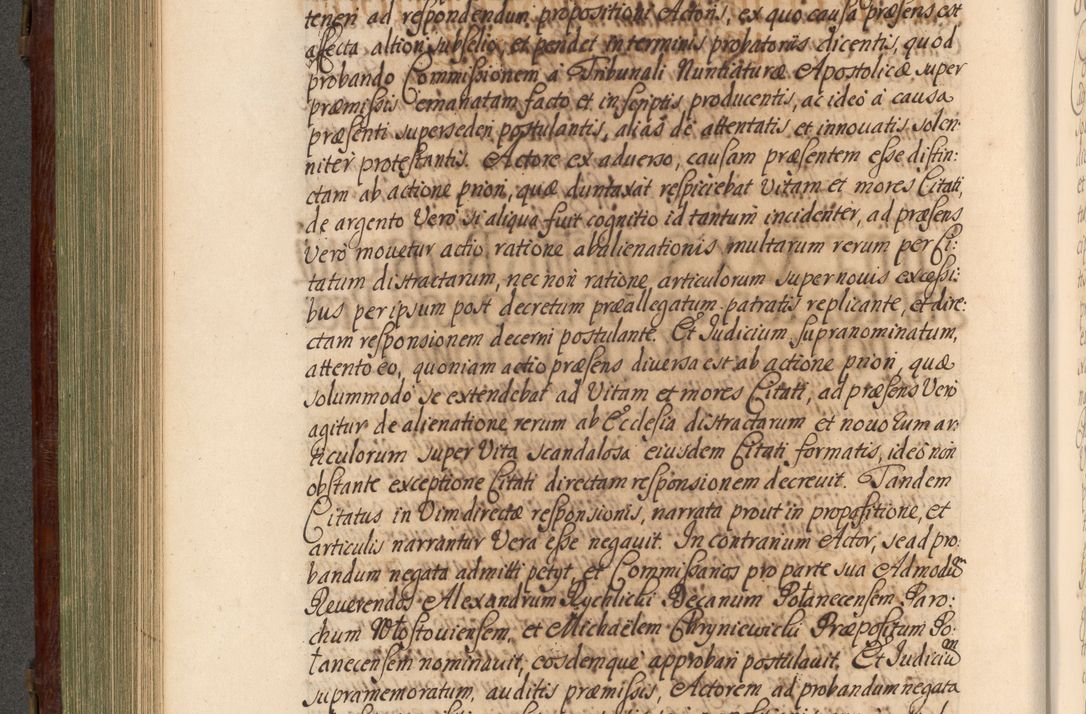 teneri ad respondendum propositioni Actoris, ex quo causa præsens est
affecta altiori subselio, et pendet in terminis probatoriis dicentis, quod
probando Commissionem à Tribunali Nuntiaturæ Apostolicæ super
præmissis emanatam facto et in scriptis producentis, ac ideo à causa
præsenti supersederi postulantis, aliàs de attentatis et innovatis solen-
niter protestantis. Actore ex adverso, causam præsentem esse distin:
ctam ab actione priori, quæ duntaxat respiciebat Vitam et mores Citati,
de argento Vero si aliqua fuit cognitio id tantum incidenter, ad præsens
Vero movetur actio ratione abalienationis multarum rerum per Ci:
tatum distractarum, nec non ratione articulorum super novis excessi:
bus per ipsum post decretum præallegatum patratis replicante, et dire:
ctam responsionem decerni postulante. Et Judicium supranominatum,
attento eo, quoniam actio præsens diversa est ab actione priori, quæ
solummodo se extendebat ad Vitam et mores Citati, ad præsens Vero
agitur de alienatione rerum ab Ecclesia distractarum et novorum ar
ticulorum super Vita scandalosa eiusdem Citati formatis, ideo non
obstante exceptione Citati directam responsionem decrevit. Tandem
Citatus in Vim directæ responsionis, narrata prout in propositione, et
articulis narrantur Vera esse negavit. In contrarium Actor, se ad pro:
bandum negata admitti petyt, et Commissarios pro parte sua Admodũ
Reverendos Alexandrum Rychlicki Decanum Połanecensem Paro:
chum Włostoviensem, et Michaëlem Chryniewicki Præpositum Po:
łanecensem nominavit, eosdemque approbari postulavit. Et Judiciũ
supramemoratum, auditis præmissis, Actorem ad probandum negata